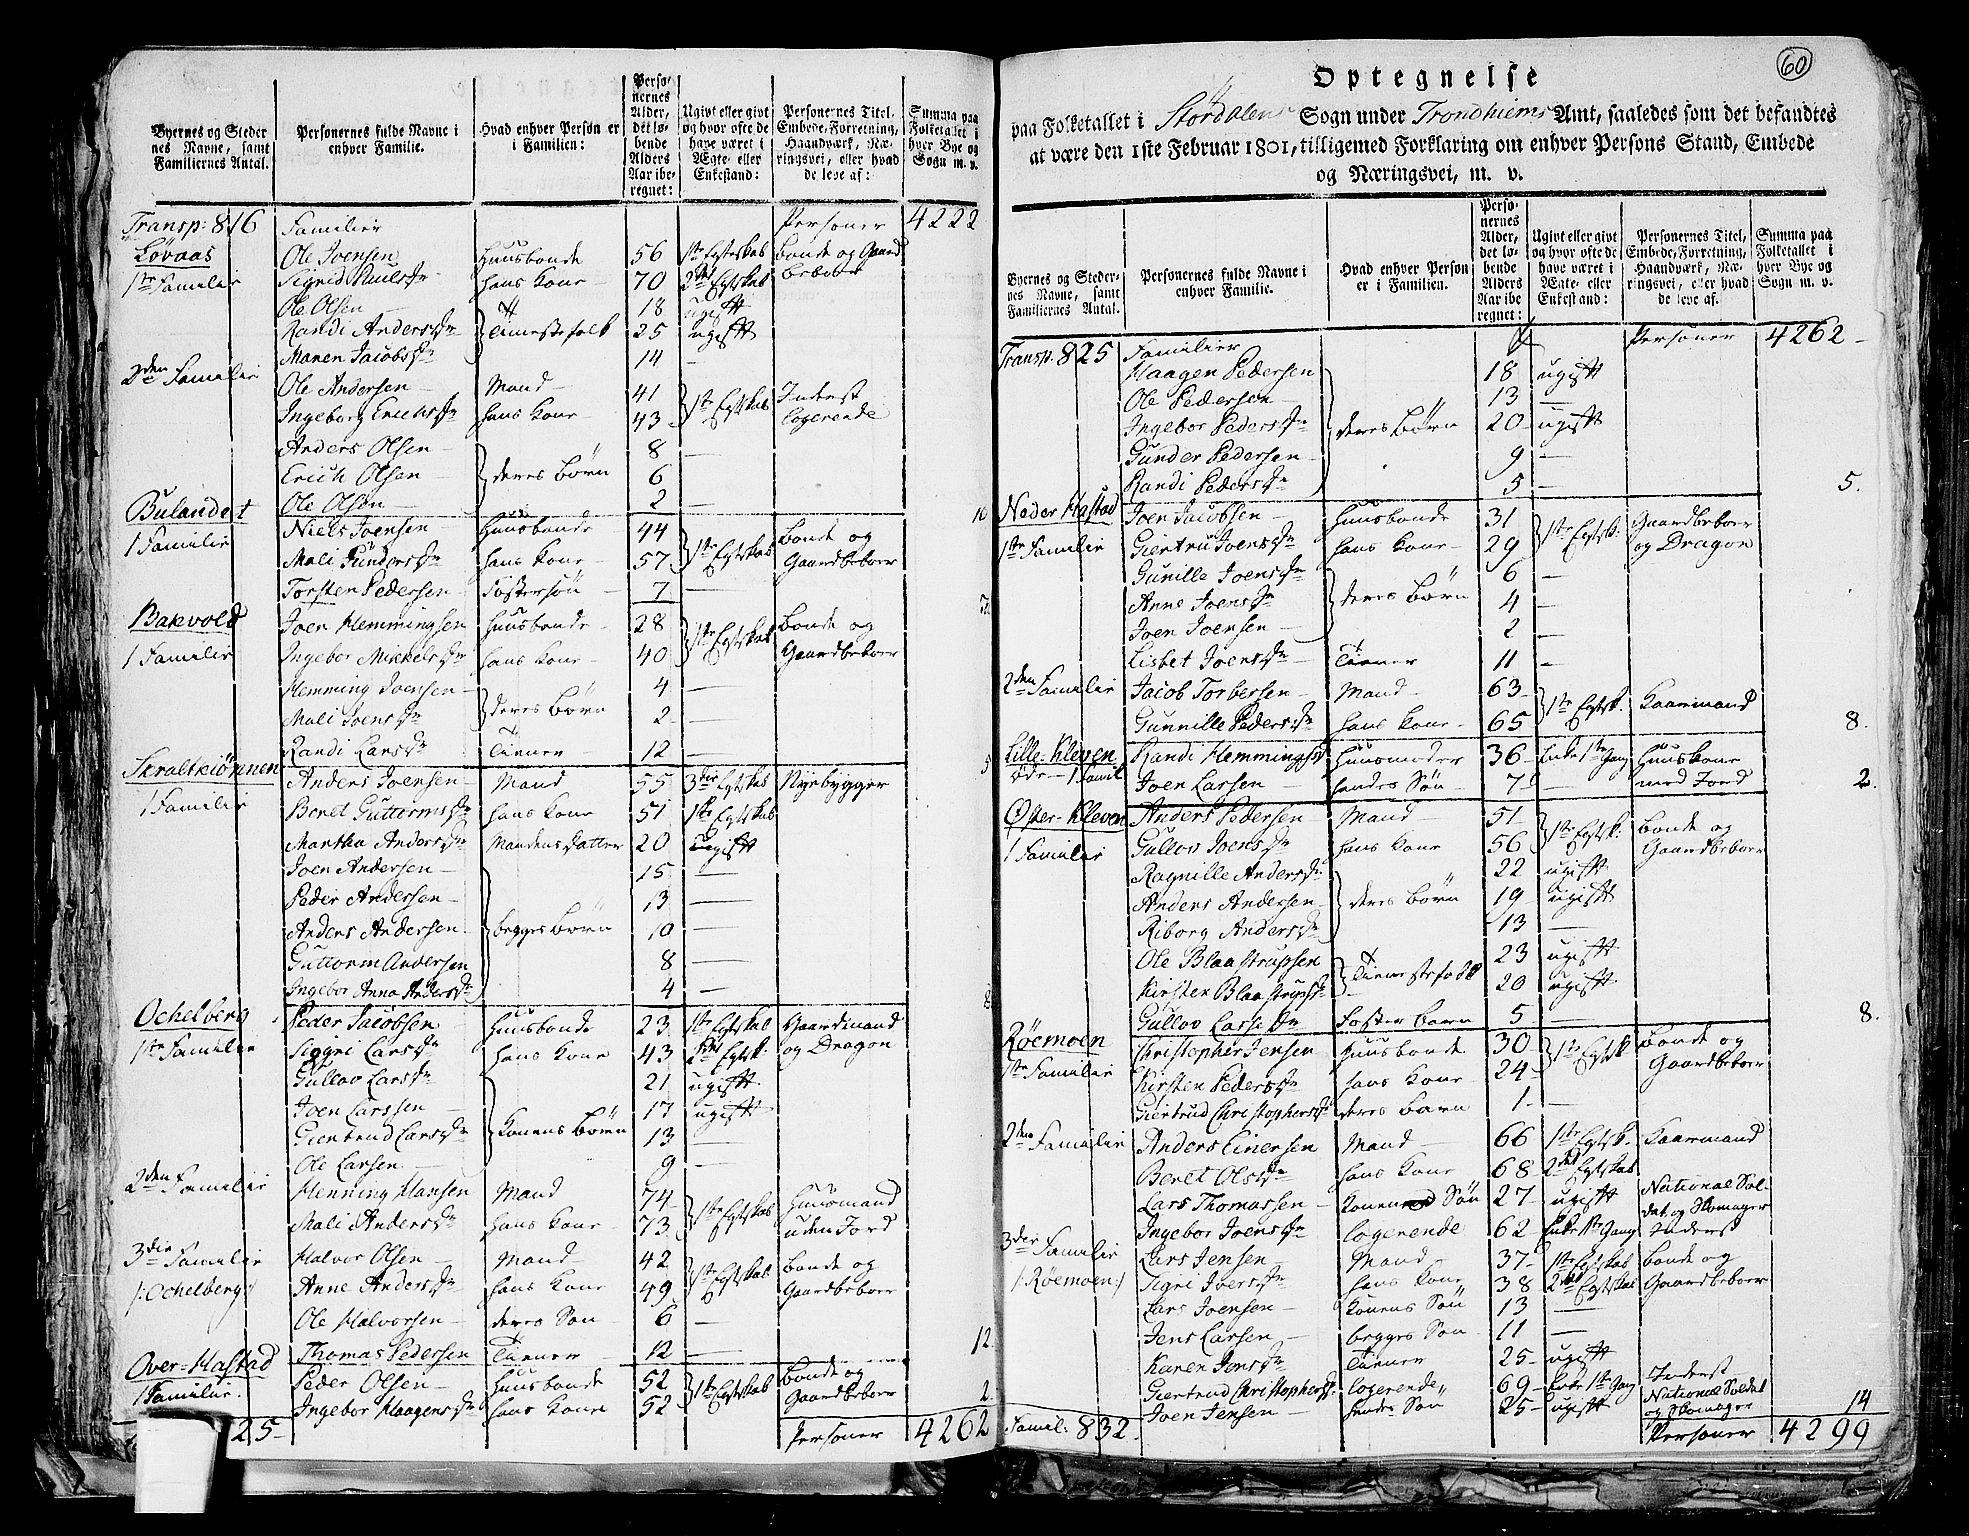 Byernes og Steder
nes Navne, samt
Familiernes Antal.
Personernes fulde Navne i
enhver Familie.
Hvad enhver Person er
i Familien:
Perso-
nernes
Alder,
det lø-
bende
Alders
Aar ibe-
regnet:
Ugivt eller givt
og hvor ofte de
have været i
Ægte- eller
Enkestand:
Personernes Titel,
Embede, Forretning,
Haandværk, Næ-
ringsvei, eller hvad
de leve af:
Summa paa
Folketallet i
hver Bye og
Sogn m. v.
Transp: 816 Familier Personer 4222
Løvaas Ole Joensen Huusbonde 56 1ste Egteskab Bonde og Gaard
1ste Familie Sigrid Paulsdr hans Kone 70 2det Egtskab beboer
Ole Olsen 18 ugift
Randi Andersdr Tienestefolk 25 ugift
Maren Jacobsdr 14 —
2den Familie Ole Andersen Mand 41 1ste Egtskab Inderst
Ingeborg Erichsdr hans Kone 43 logerende
Anders Olsen 8 —
Erich Olsen deres Børn 6
Ole Olsen 2 — 10
Bulandet Niels Joensen Huusbonde 44 1ste Egtskab Bonde og
1 Familie Mali Gundersdr hans Kone 57 Gaardbeboer
Torsten Pedersen Fostersøn 7 —
Bakvold Joen Hemmingsen Huusbonde 28 1ste Egtskab Bonde og
1 Familie Ingebor Mikkelsdr hans Kone 40 Gaardbeboer
Hemming Joensen 4 —
Mali Joensdr deres Børn 2 —
Randi Larsdr Tiener 12 — 5
Skraltkiønnen Anders Joensen Mand 55 3die Egtskab Nyebygger
1 Familie Beret Guttormsdr hans Kone 51 1ste Egtskab
Martha Andersdr Mandens Datter 20 Ugift
Joen Andersen 15 —
Peder Andersen 13 —
Anders Andersen begges Børn 10 —
Guttorm Andersen 8 —
Ingebor Anna Andersdr 4 — 8
Ochelberg Peder Jacobsen Huusbonde 23 1ste Egtskab Gaardmand
1ste Familie Siggri Larsdr hans Kone 43 2det Egtsk. og Dragon
Gullov Larsdr 21 ugift
Joen Larssen 17 ugift
Giertrud Larsdr Konens Børn 13 —
Ole Larsen 9 —
2den Familie Henning Hansen Mand 74 1ste Egtskab Huusmand
Mali Andersdr hans Kone 73 uden Jord
3die Familie Halvor Olsen Mand 42 1ste Egtskab Bonde og
/:Ochelberg:/ Anne Andersdr hans Kone 49 Gaardbeboer
Ole Halvorsen deres Søn 6 —
Thomas Pedersen Tiener 12 — 12.
Over-Hastad Peder Olsen Huusbonde 52 1ste Egtskab Bonde og
1 Familie. Ingebor Haagensdr hans Kone 52 Gaardbeboer 2.
25 Personer 4262
60
Optegnelse
paa Folketallet i Størdalens Sogn under Trondhiems Amt, saaledes som det befandtes
at være den 1ste Februar 1801, tilligemed Forklaring om enhver Persons Stand, Embede
og Næringsvei, m. v.
Byernes og Steder-
nes Navne, samt
Familiernes Antal.
Personernes fulde Navne i
enhver Familie.
Hvad enhver Person
er i Familien.
Perso-
nernes
Alder,
det lø-
bende
Alders
Aar ibe
regnet:
Ugivt eller givt
og hvor ofte de
have været i
Ægte- eller
Enkestand:
Personernes Titel,
Embede, Forretning,
Haandværk, Næ-
ringsvei, eller hvad
de leve af.
Summa paa
Folketallet i
hver Bye og
Sogn m. v.
Transp. 825 Familier Personer 4262
Haagen Pedersen 18 ugift
Ole Pedersen 13 —
Ingebor Pedersdr deres Børn 20 ugift
Gunder Pedersen 9 —
Randi Pedersdr 5 — 5.
Neder Hastad Joen Jacobsen Huusbonde 31 1ste Egtsk. Gaardbeboer
1ste Familie Giertru Joensdr hans Kone 29 og Dragon
Gunille Joensdr 6 —
Anne Joensdr deres Børn 4 —
Joen Joensen 2 —
Lisbet Joensdr Tiener 11 —
2den Familie Jacob Torbersen Mand 63 1ste Egtsk. Kaarmand
Gunnille Pedersdr hans Kone 65 8.
Lille-Kleven Randi Hemmingsdr Huusmoder 36 Enke 1ste Gang Huuskone
øde — 1 Famil Joen Larsen hendes Søn 7 — med Jord 2.
Øster-Kleven Anders Pedersen Mand 51 1ste Egtsk. Bonde og
1 Familie Gullov Joensdr hans Kone 56 Gaardbeboer
Ragnille Andersdr 22 ugift
Anders Andersen deres Børn 19 ugift
Riborg Andersdr 13 —
Ole Blaastrupsen 23 ugift
Kirsten Blaastrupsdr Tienestefolk 20 ugift
Gullov Larsdr Foster barn 5 — 8.
Røemoen Christopher Jensen Huusbonde 30 1ste Egtsk Bonde og
1ste Familie Kirsten Pedersdr hans Kone 24 Gaardbeboer
Giertrud Christophersdr deres Barn 1 —
2den Familie Anders Einersen Mand 66 1ste Egtsk. Kaarmand
Beret Olsdr hans Kone 68 2det Egtskab
Lars Thomassen Konens Søn 27 ugift National Sol-
dat og Skomager
Ingebor Joensdr logerende 62 Enke 1ste Gang Inderst
3die Familie Lars Jensen Mand 37 1ste Egtskab Bonde og
/:Røemoen:/ Sigri Iversdr hans Kone 38 2det Egtskab Gaardbeboer
Lars Joensen Konens Søn 13 —
Jens Larsen begges Søn 11 —
Karen Jensdr Tiener 25 ugift
Giertrud Christophersdr logerende 69 Enke 1ste Gang Inderst
Joen Jensen hendes Søn 25 ugift National Soldat
og Skomager 14
Famil: 832. Personer 4299